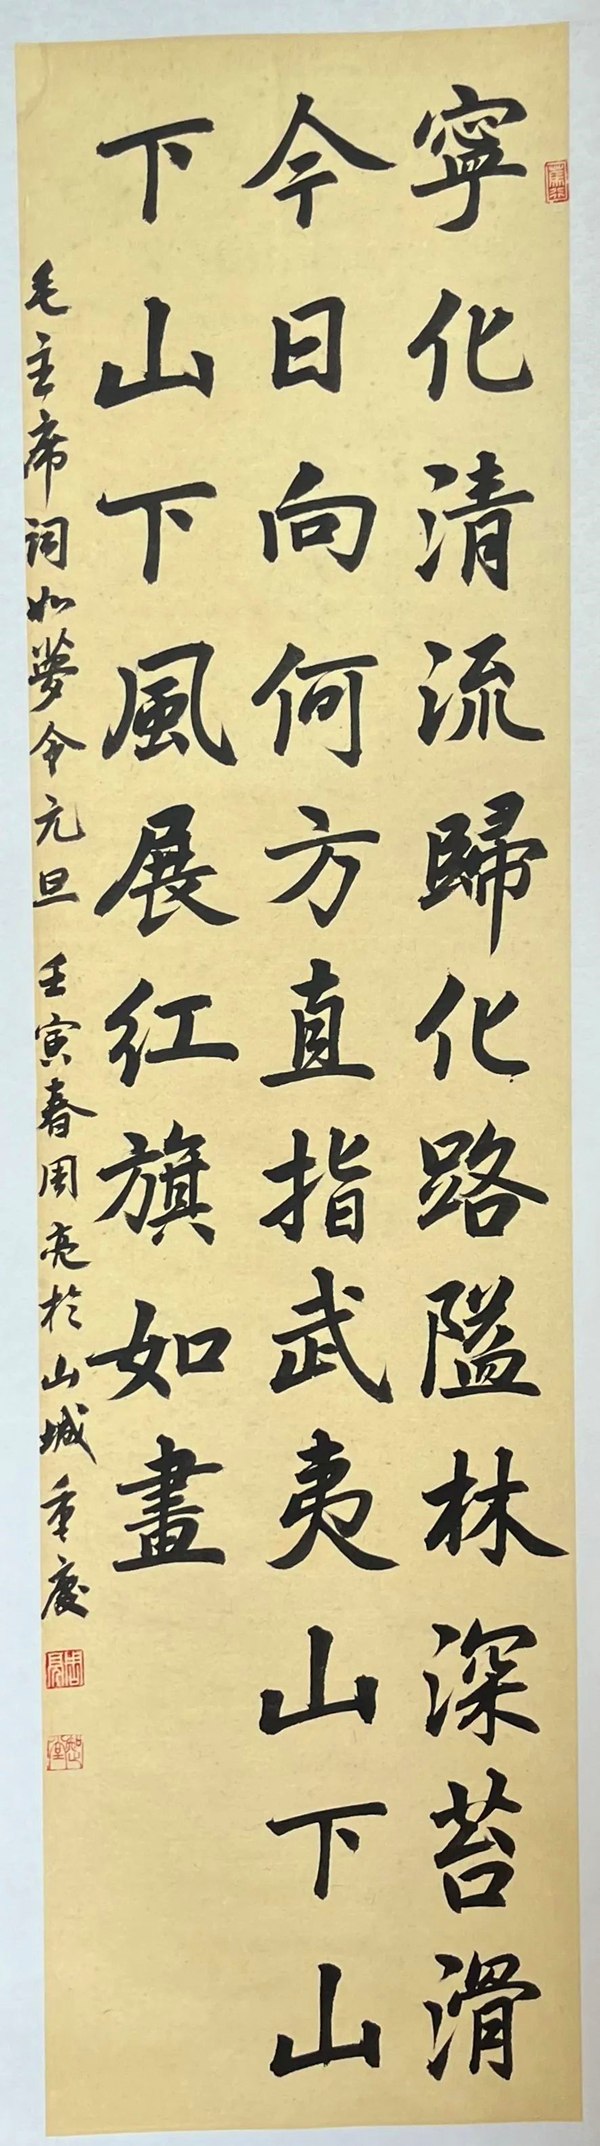 寧化清流歸化路隘林深苔滑
今日向何方直指武夷山下山
下山下風展红旗如畫
毛主席词如夢令元旦 壬寅春周亮於山城重慶